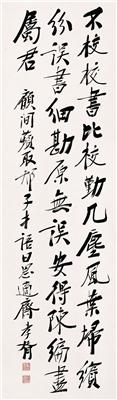 不校校書比校勤几塵風葉掃繽
紛誤書細勘原無誤安得陳編盡
屬君 顧澗薲取邢子才語曰思適齋 孝胥